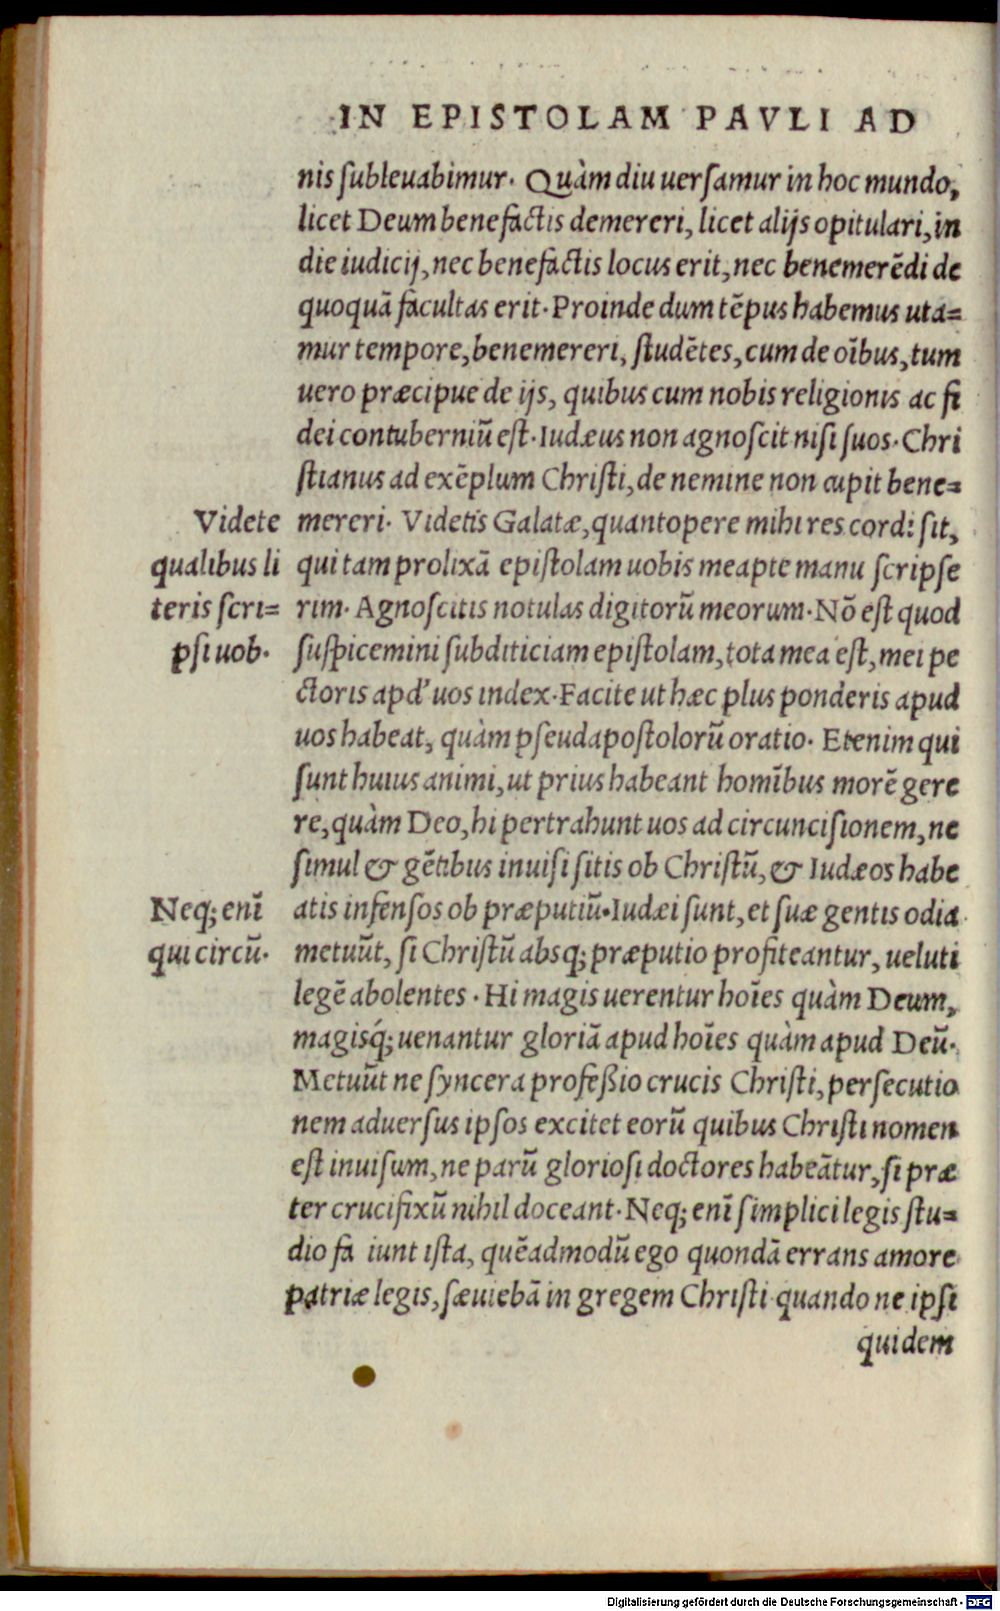 IN EPISTOLAM PAVLI AD
nis ſubleuabimur. Quàm diu uerſamur in hoc mundo,
licet Deum benefactis demereri, licet alijs opitulari, in
die iudicij, nec benefactis locus erit, nec benemerēdi de
quoquā facultas erit. Proinde dum tēpus habemus uta=
mur tempore, benemereri, ſtudētes, cum de oībus, tum
uero præcipue de ijs, quibus cum nobis religionis ac fi
dei contuberniū eſt. Iudæus non agnoſcit niſi ſuos. Chri
ſtianus ad exēplum Chriſti, de nemine non cupit bene=
mereri. Videtis Galatæ, quantopere mihi res cordi ſit,
qui tam prolixā epiſtolam uobis meapte manu ſcripſe
rim. Agnoſcitis notulas digitorū meorum. Nō eſt quod
ſuſpicemini ſubditiciam epiſtolam, tota mea eſt, mei pe
ctoris apd' uos index. Facite ut hæc plus ponderis apud
uos habeat, quàm pſeudapoſtolorū oratio. Etenim qui
ſunt huius animi, ut prius habeant homībus morē gere
re, quàm Deo, hi pertrahunt uos ad circunciſionem, ne
ſimul & gētibus inuiſi ſitis ob Chriſtū, & Iudæos habe
atis infenſos ob præputiū. Iudæi ſunt, et ſuæ gentis odia
metuūt, ſi Chriſtū absq; præputio profiteantur, ueluti
legē abolentes. Hi magis uerentur hoīes quàm Deum,
magisq́; uenantur gloriā apud hoīes quàm apud Deū.
Metuūt ne ſyncera profeßio crucis Chriſti, perſecutio
nem aduerſus ipſos excitet eorū quibus Chriſti nomen
eſt inuiſum, ne parū glorioſi doctores habeātur, ſi præ
ter crucifixū nihil doceant. Neq; enī ſimplici legis ſtu=
dio fa iunt iſta, quēadmodū ego quondā errans amore
patriæ legis, ſæuiebā in gregem Chriſti quando ne ipſi
quidem
Videte
qualibus li
teris ſcri=
pſi uob.
Neq; enī
qui circū.
Digitalisierung gefördert durch die Deutsche Forschungsgemeinschaft - DFG